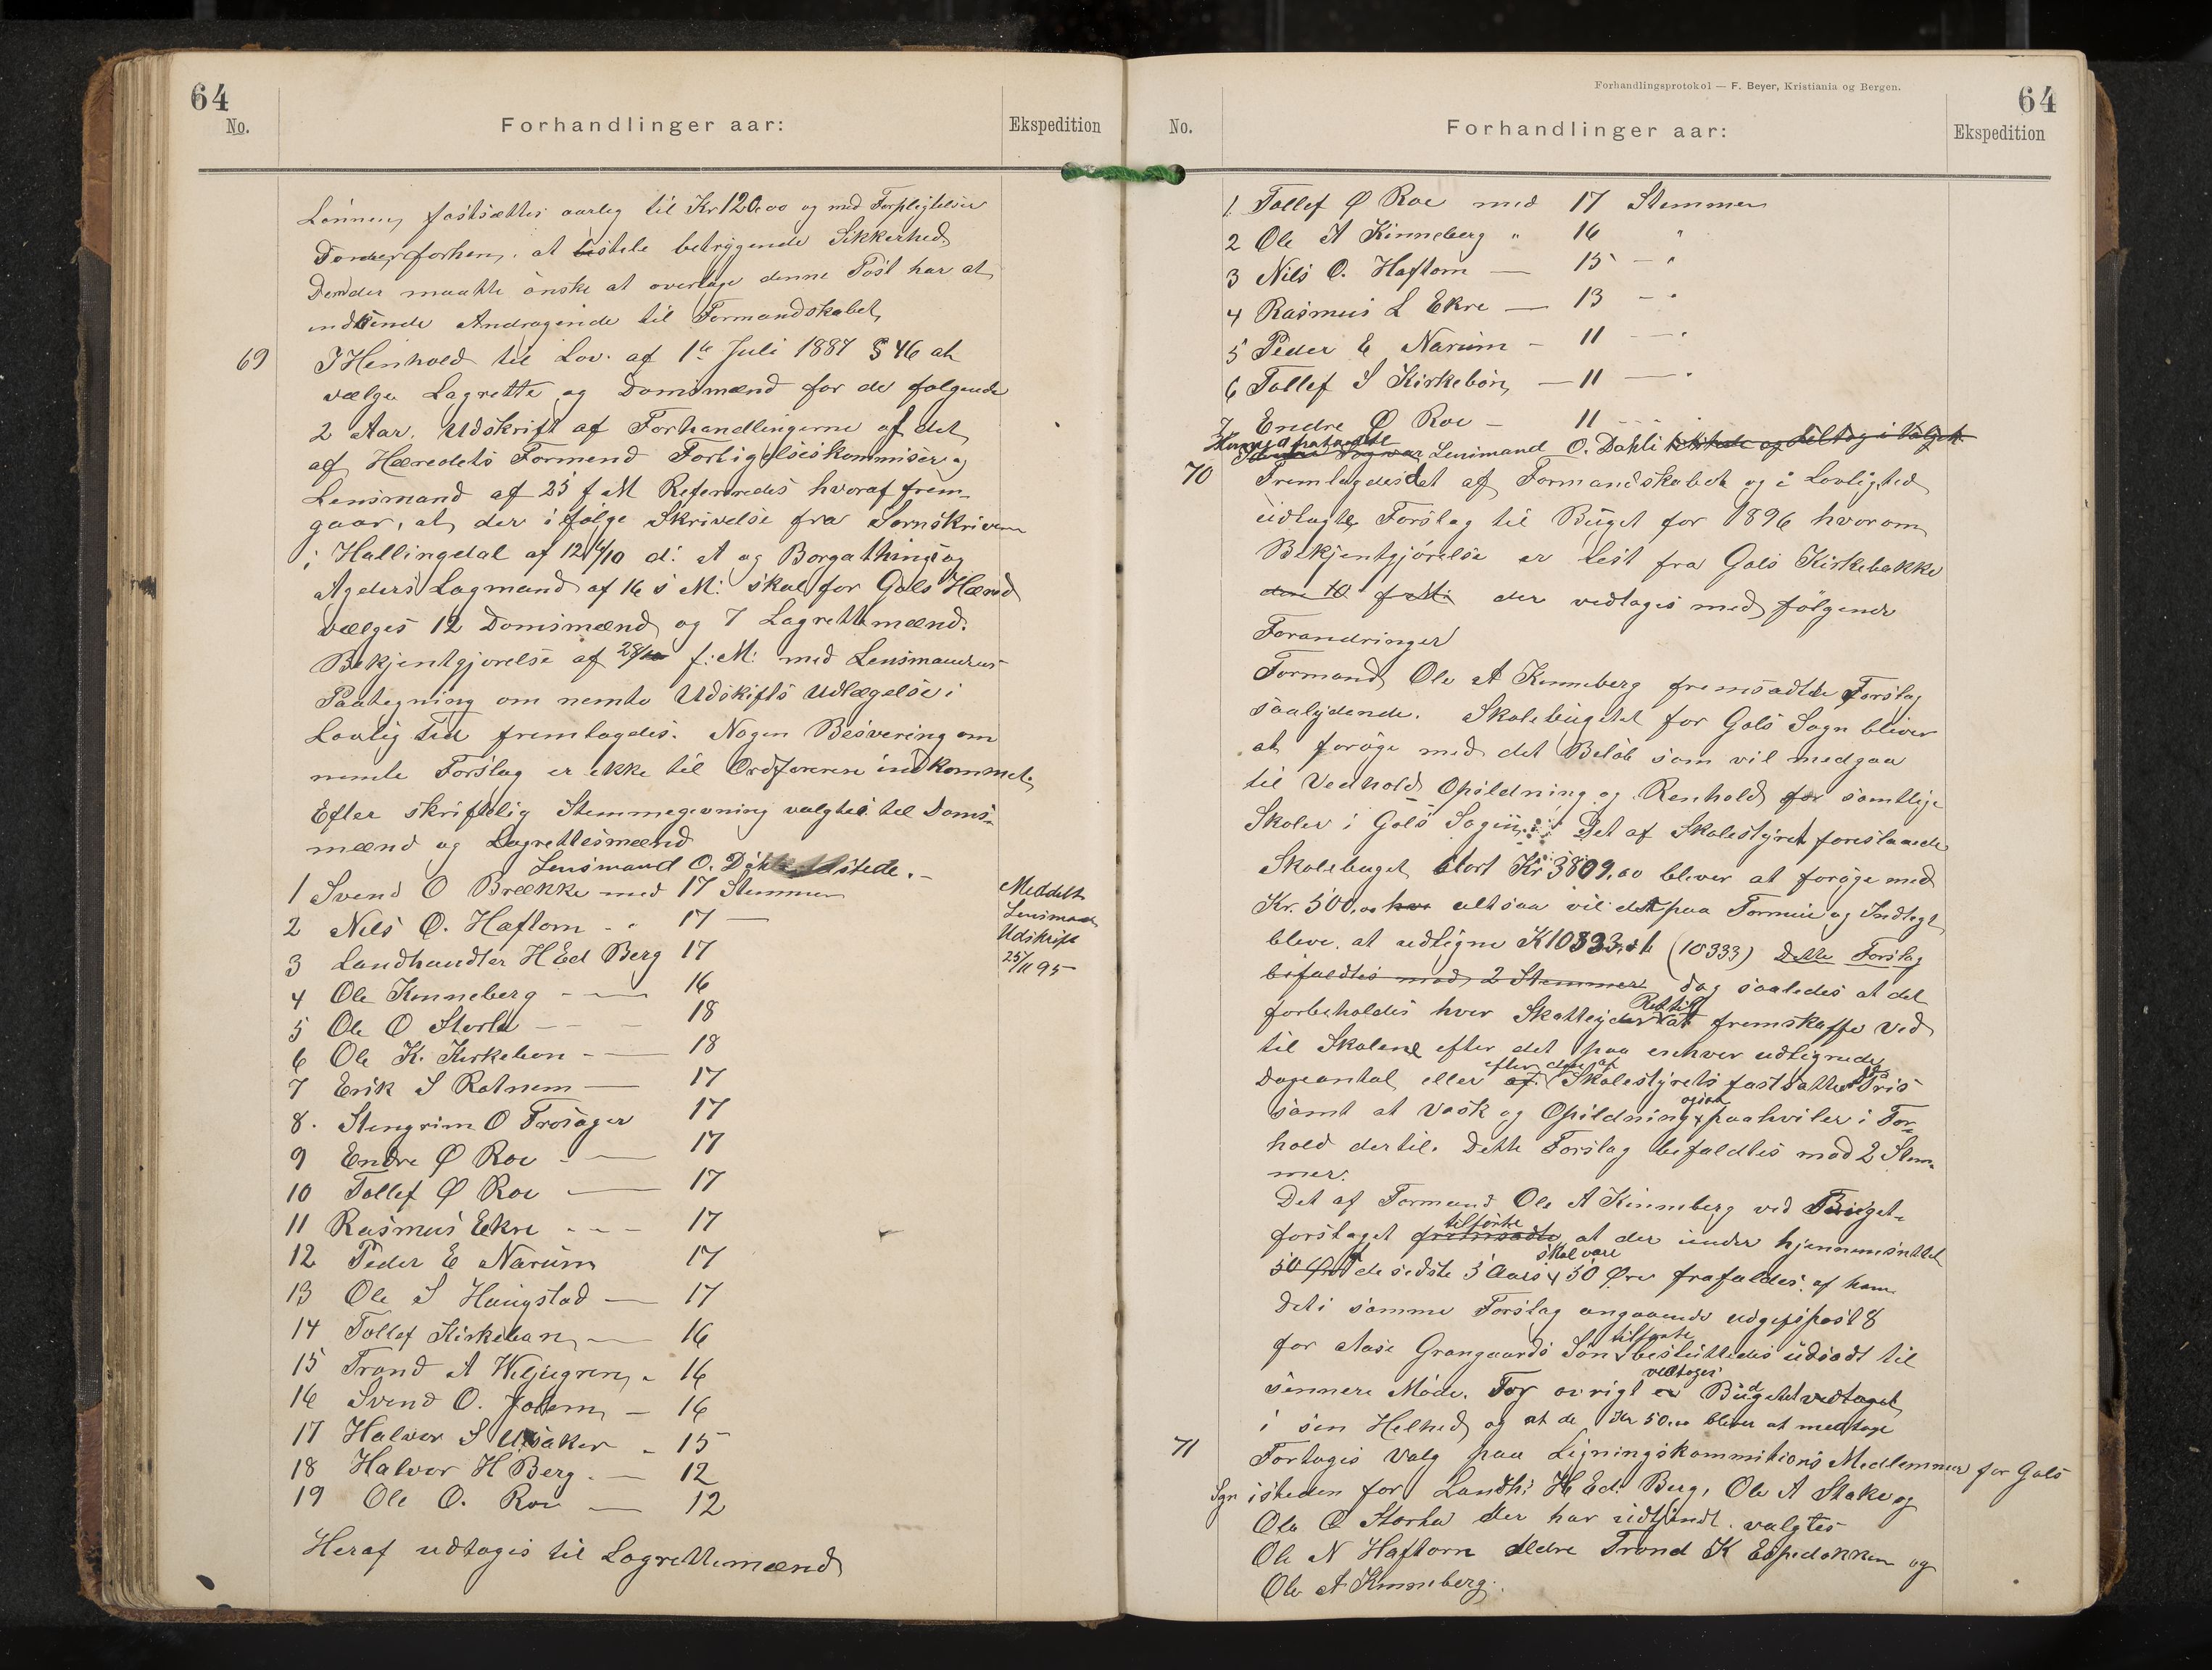 64
No.
Forhandlinger aar:
Ekspedition
Lönnen, fastsættes aarlig til Kr 120.00 og med Forplegtelser
at bestele betryggende Sikkerhed
Den der maatte önske at overtage denne Post har at
indsende Andragende til Formandskabet
69
I Henhold til Lov. af 1te Juli 1887 § 46 at
vælge Lagrette og Domsmænd for de folgende
2 Aar. Udskrift af Forhandlingerne af det
af Hæredets Formend Forligelseskommiser og
Lensmand af 25 f M Refereredes hvoraf frem-
gaar, at der ifölge Skrivelse fra Sornskriveren
i Hallingdal af 12/10 d: A og Borgathings og
Agders Lagmand af 16 s M: skal for Gols Hæred
vælges 12 Domsmænd og 7 Lagrettemænd.
Bekjentgjorelse af 28/10 f: M: med Lensmandens
Paategning om nemte Udskifts Udlægelse i
Lovlig Tid fremlagdes. Nogen Besvering om
nemte Forslag er ikke til Ordföreren indkommet,
Efter skriftelig Stemmegivning valgtes til Doms-
mænd og Lagrettesmænd
Lensmand O. Dahli tilstede.-
1 Svend O Brække med 17 Stemmer
2 Nils O. Haftorn - " 17 —
3 Landhandler H Ed Berg 17
4 Ole Kinneberg - — 16
5 Ole O Storla - - - 18
6 Ole K. Kirkebon - — 18
7 Erik S Rotnem — 17
8. Stengrim O Trosager 17
9 Endre Ø Roe - — 17
10 Tollef Ø Roe — 17
11 Rasmus Ekre - - - 17
12 Peder E Narum 17
13 Ole S Haugstad — 17
14 Tollef Kirkebøn — 16
15 Trond A Viljugrein - 16
16 Svend O. Jotem — 16
17 Halvor S Ulsaker - 15
18 Halvor H Berg. — 12
19 Ole O. Roe — 12
Heraf udtoges til Lagrettemænd
Meddelt
Lensmand
Udskrift
25/11 95
Forhandlingsprotokol — F. Beyer, Kristiania og Bergen.
64
No.
Forhandlinger aar:
Ekspedition
1. Tollef Ø Roe med 17 Stemmer
2 Ole A Kinneberg " 16 "
3 Nils O. Haftorn — 15 — "
4 Rasmus L Ekre — 13 — "
5 Peder E Narum - 11 — "
6 Tollef S Kirkebön, — 11 — "
7 Endre Ø Roe - 11 - - -
Lensmand O. Dahli tilstede og deltog i Valget.
70
Fremlagdes det af Formandskabet og i Lovlighed
udlagte Forslag til Büget for 1896 hvorom
Bekjentgjörelse er lest fra Gols Kirkebakke
den 10 f M: der vedtages med fölgende
Forandringer
Formand Ole A Kinneberg fremsadte Forslag
saalydende. Skolebügetet for Gols Sogn bliver
at foröge med det Belöb som vil medgaa
til Vedhold Opildning og Renhold for samtlige
Skoler i Gols Sogn. Det af Skolestyret foreslaaede
Skolebuget stort Kr 3809.00 bliver at foröge med
Kr. 500.00 altsaa vil det paa Formue og Indtegt
blive at udligne K 10333.61 (10333) Dette Forslag
bifaldtes mod 2 Stemmer dog saaledes at det
forbeholdes hver Skatteyder Ret til at fremskaffe Ved
til Skolene efter det paa enhver udlignede
Dageantal eller af efter den af Skolestyrets fastsatte Pris
samt at Vask og Opildning ogsaa paahviler i For-
hold dertil. Dette Forslag bifaldtes mod 2 Stem-
mer.
Det af Formand Ole A Kinneberg ved Büget-
forslaget fremsadte tilförte at der under hjennemsnittet
de sidste 5 Aars skal være 50 Øre frafaldes af ham
det i samme Forslag angaaende udgifspost 8
for Aase Grangaards Sön tilförte besluttedes udsadt til
sennere Möde. For övrigt er vedtoges Büdgetet vedtaget
i sin Helhed og at de Kr 50.00 bliver at medtage
71
Fortoges Valg paa Ligningskommitions Medlemmer for Gols
Sgn isteden for Landh: H Ed. Berg, Ole A Stake og
Ole O Storla der har udtjendt. valgtes
Ole N Haftorn eldre Trond K Espedokken og
Ole A Kinneberg.